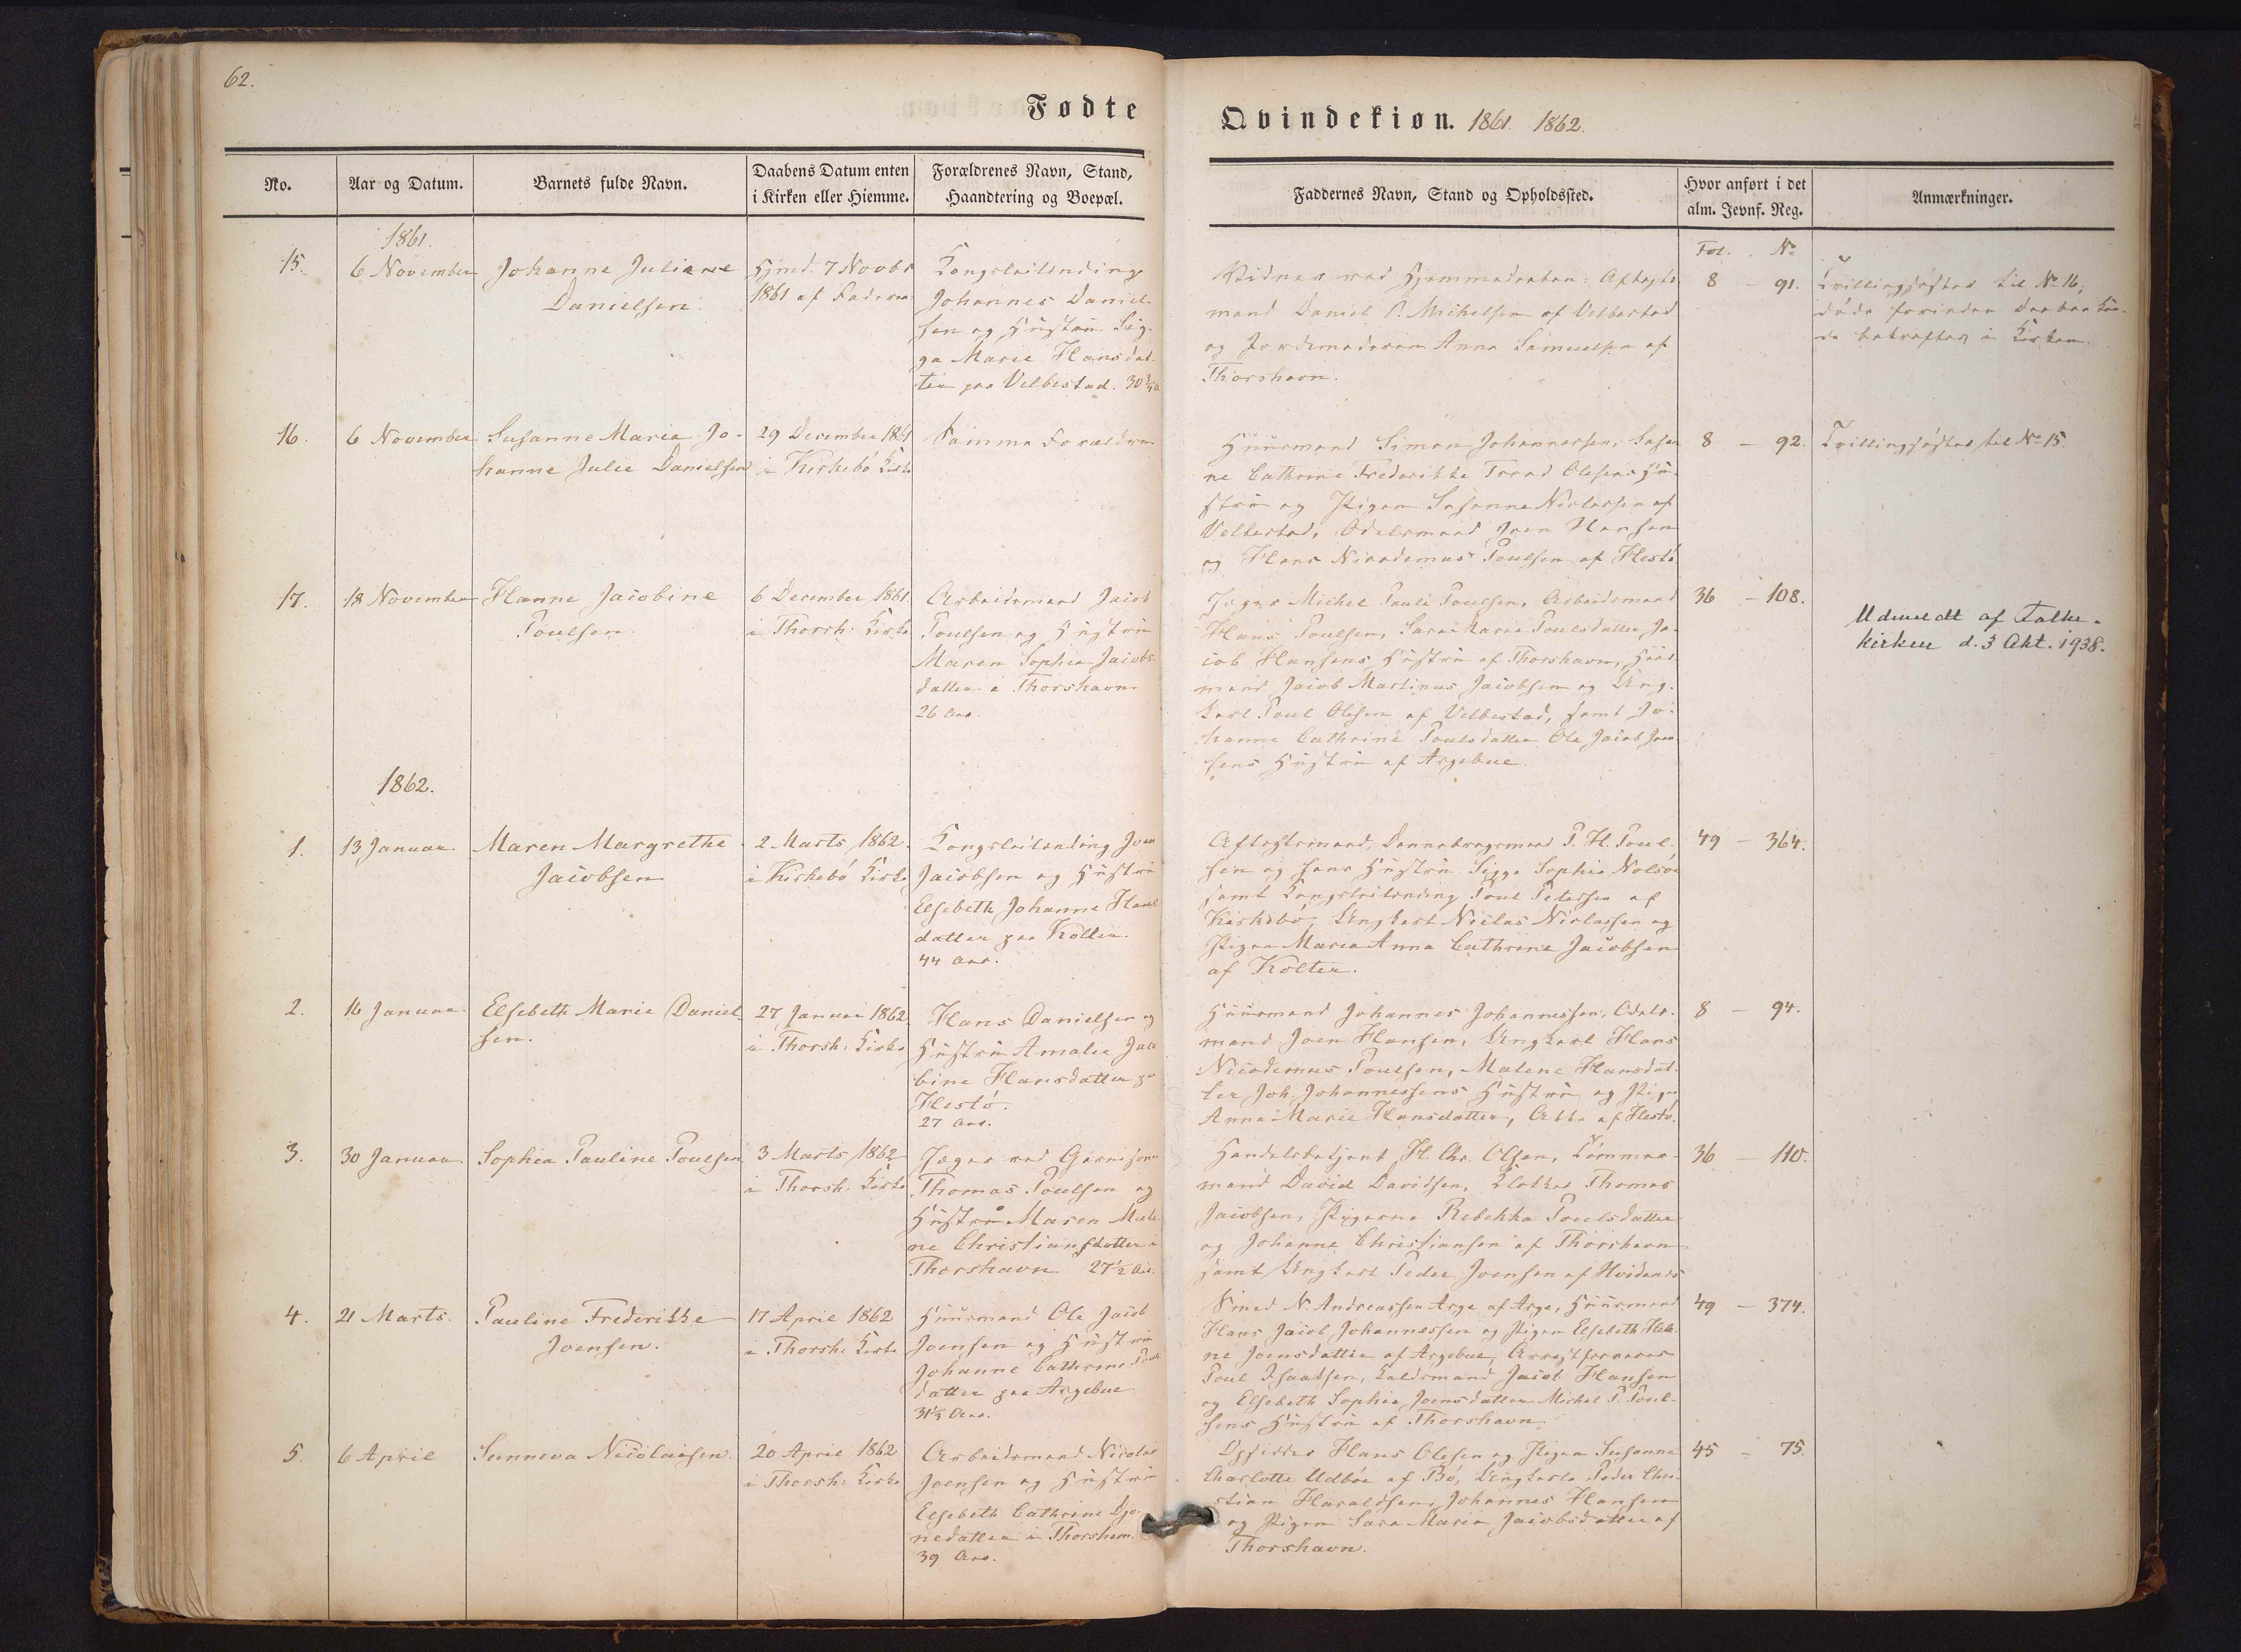 62.
Fødte
Qvindekiøn. 1861 1862.
No.
Aar og Datum.
Barnets fulde Navn.
Daabens Datum enten
i Kirken eller Hiemme.
Forældrenes Navn, Stand,
Haandtering og Boepæl.
Faddernes Navn, Stand og Opholdssted.
Hvor anført i det
alm. Jevnf. Reg.
Anmærkninger.
Fol. No
1861.
15.
6 November
Johanne Juliane
Danielsen.
Hjmd. 7 Novbr
1861 af Faderen
Kongsleilending
Johannes Daniel-
sen og Hustru Sig-
ga Marie Hansdat-
ter paa Velbestad. 30 3/4
Vidner ved Hjemmedaaben: Aftægts-
mand Daniel P. Michelsen af Velbestad
og Jordemoderen Anna Samuelsen af
Thorshavn.
8 - 91.
Tvillingsøster til No 16,
døde forinden Daaben kun-
de bekræftes i Kirken.
16.
6 November
Susanne Maria Jo-
hanne Julie Danielsen
29 December 1861
i Kirkebø Kirke
Samme Forældre
Huusmand Simon Johannessen, Susan
ne Cathrine Frederikke Trond Olesens Hu-
stru og Pigen Susanne Niclassen af
Velbestad, Odelsmand Joen Hansen
og Hans Nicodemus Poulsen af Hestø
8 - 92.
Tvillingsøster til No 15.
17.
18 November
Hanne Jacobine
Poulsen.
6 December 1861.
i Thorsh. Kirke
Arbeidsmand Jacob
Poulsen og Hustru
Maren Sophie Jacobs-
datter i Thorshavn
26 Aar.
Jæger Michel Pauli Poulsen, Arbeidsmand
Hans Poulsen, Sara Maria Poulsdatter Ja-
cob Hansens Hustru af Thorshavn, Huus-
mand Jacob Martinus Jacobsen og Ung-
karl Poul Olesen af Velbestad, samt Jo-
hanne Cathrine Poulsdatter Ole Jacob Joen-
sens Hustru af Argebue
36 - 108.
Udmeldt af Folke-
kirken d. 3 Okt. 1938.
1862.
1.
13 Januar.
Maren Margrethe
Jacobsen
2 Marts 1862.
i Kirkebø Kirke
Kongsleilending Joen
Jacobsen og Hustru
Elsebeth Johanne Hans
datter paa Kolter.
44 Aar.
Aftægtsmand, Dannebrogsmand P. H. Poul-
sen og hans Hustru Sigga Sophie Nolsøe
samt Kongsleilending Poul Petersen af
Kirkebø, Ungkarl Niclas Niclassen og
Pigen Maria Anna Cathrine Jacobsen
af Kolter.
49 - 364.
2.
16 Januar.
Elsebeth Marie Daniel-
sen.
27 Januar 1862.
i Thorsh. Kirke
Hans Danielsen og
Hustru Amalie Jaco
bine Hansdatter paa
Hestø.
27 Aar.
Huusmand Johannes Johannessen, Odels-
mand Joen Hansen, Ungkarl Hans
Nicodemus Poulsen, Malene Hansdat-
ter Joh. Johannessens Hustru og Pigen
Anna Marie Hansdatter, Alle af Hestø.
8 - 94.
3.
30 Januar
Sophie Pauline Poulsen
3 Marts 1862
i Thorsh. Kirke
Jæger ved Garnisonen
Thomas Poulsen og
Hustru Maren Male
ne Christiansdatter i
Thorshavn 27 1/2 Aar.
Handelsbetjent H. Chr. Olsen, Tømmer-
mand David Davidsen, Klokker Thomas
Jacobsen, Pigerne Rebekka Poulsdatter
og Johanne Christiansen af Thorshavn
samt Ungkarl Peder Joensen af Hvidenes
36 - 110.
4.
21 Marts.
Pauline Frederikke
Joensen.
17 April 1862
i Thorsh. Kirke
Huusmand Ole Jacob
Joensen og Hustru
Johanne Cathrine Pouls
datter paa Argebue
31 1/3 Aar.
Smed N Andreassen Arge af Arge, Huusmand
Hans Jacob Johannessen og Pigen Elsebeth Hele-
ne Joensdatter af Argebue, Arrestforvarer
Poul Isaksen, Kaldsmand Jacob Hansen
og Elsebeth Sophie Joensdatter Michel P. Poul-
sens Hustru af Thorshavn.
49 - 374.
5.
6 April
Sunneva Nicolaisen.
20 April 1862
i Thorsh. Kirke
Arbeidsmand Nicolai
Joensen og Hustru
Elsebeth Cathrine Djo-
nedatter i Thorshavn.
39 Aar.
Opsidder Hans Olesen og Pigen Susanne
Charlotte Udbøe af Bø, Ungkarle Peder Chri-
stian Haraldsen, Johannes Hansen
og Pigen Sara Maria Jacobsdatter af
Thorshavn.
45 - 75.